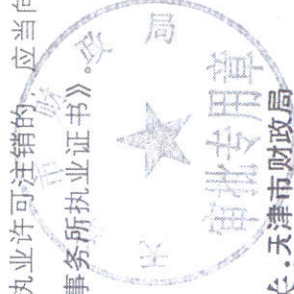 执业许可注销的,应当向
事务所执业证书》。
天津市财政局
审批专用章
关:天津市财政局